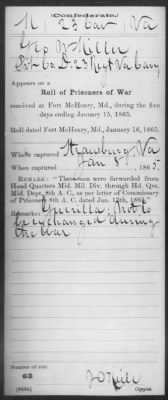 (Confederate.)
M 23 Cav Va
Geo W Miller
Pvt Co D. 23 Regt Va Cavy
Appears on a
Roll of Prisoners of War
received at Fort McHenry, Md., during the five
days ending January 15, 1865.
Roll dated Fort McHenry, Md., January 16, 1865.
Where captured Va
When captured Jan 8, 1865
REMARK: "These men were forwarded from
Head Quarters Mid. Mil. Div, through Hd. Qrs.
Mid. Dept, 8th A. C., as per letter of Commissary
of Prisoners 8th A. C. dated Jan. 13th, 1865."
Remarks: Guerilla; Not to
be exchanged during
the War
Number of roll:
63
Copyist.